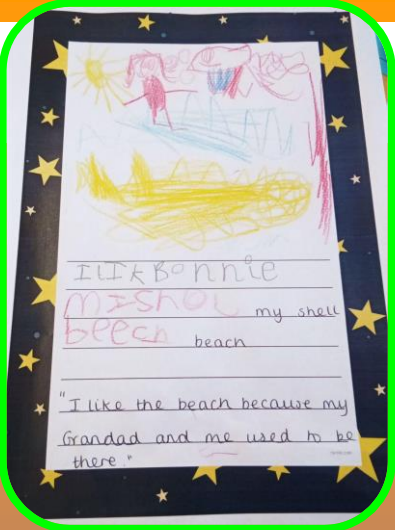 I LIK Bonnie
MISHOL my shell
beech beach
"I like the beach because my
Grandad and me used to be
there."